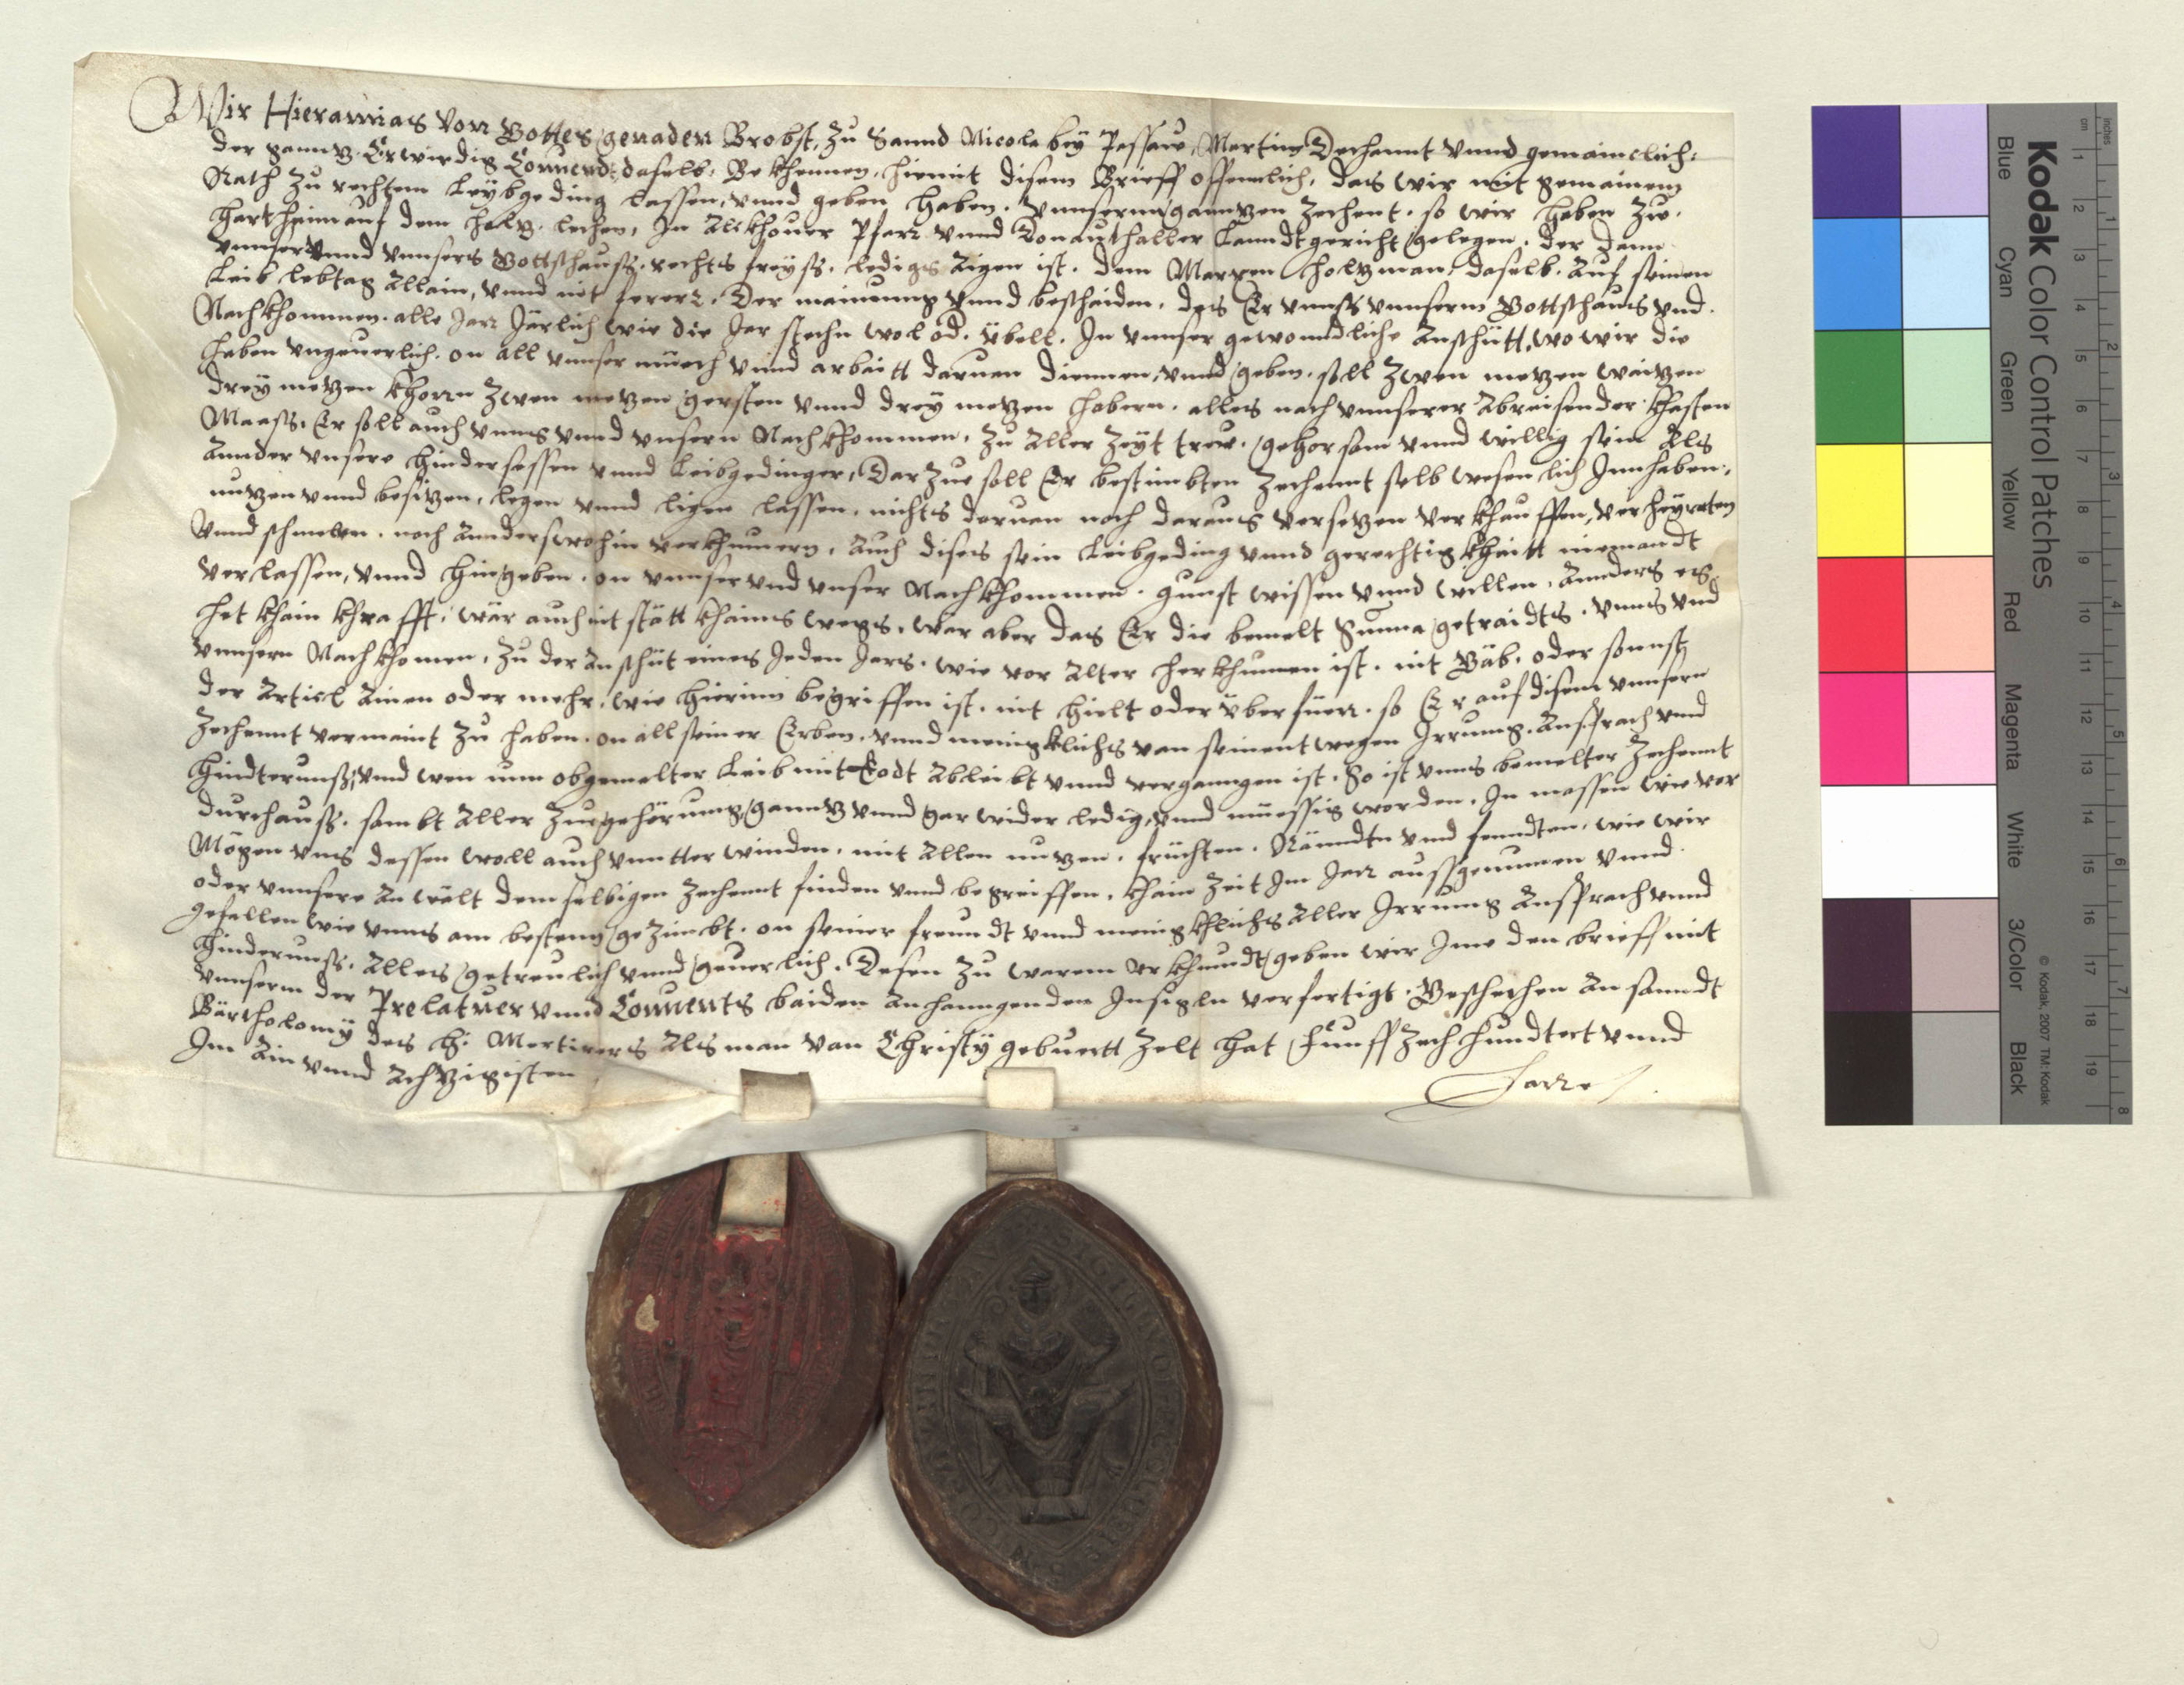 Wir Hieramias von Gottes genaden Brobst, zu Sannd Nicola bey Passaw, Martin Dechannt vnnd gemainclich:
der ganntz Erwirdig Conuent daselb: Bekhennen, hiemit disem Brieff offenlich, das wir mit gemainem
Rath zu rechtem Leybgeding lassen, vnnd geben haben. Vnnserm ganntzen Zechent. so wir haben zu.
Harthaim auf dem holtz. lechen, In Alkhouer Pfarr vnnd Donauthaller Lanndtgericht gelegen. der dann
vnnser vnnd vnnsers Gottshauss. rechts freyss. ledigs Aigen ist. dem Marxen Holtzman, daselb. Auf seinen
Leib lebtag Allain, vnnd nit ferrer. Der mainung vnnd beschaiden, das Er vnnss vnnserm Gottshaus vnd.
Nachkhommen. alle Jar Järlich wie die Jar stehn wol od. übell. In vnnser gewonndliche Anschütt, wo wir die
haben vngeuerlich. on all vnnser müech vnnd arbaitt daruan diennen, vnnd geben. soll zwen metzen waitzen
drey metzen khorn zwen metzen gersten vnnd drey metzen habern. alles nach vnnserer Abreisender Khasten
Maass. Er soll auch vnns vnnd vnsern Nachkhommen, zu aller Zeyt trew. gehorsam vnnd willig sein Als
Annder vnsere hindersessen vnnd Leibgedinger, Darzue soll Er bestimbten Zechennt selb wesenlich Innhaben,
nutzen vnnd besitzen, legen vnnd ligen lassen, nichts daruan noch daraus versetzen verkhauffen, verheyraten
vnnd schmelern. noch Annderswohin verkhumern. Auch dises sein Leibgeding vnnd gerechtigkhaitt niemandt
verlassen, vnnd hingeben. on vnnser vnd vnser Nachkhommen. gunst wissen vnnd willen. Annders es
het khain khrafft, wär auch nit stätt khains wegs. War aber das Er die bemelt Suma getraidts. vnns vnd
vnnsern Nachkhomen, zu der Anschüt eines Jeden Jars. wie vor Alter herkhumen ist. nit Gäb. oder sonnst
der Articl Ainen oder mehr, wie hierinn begriffen ist. nit hielt oder überfüer. so Er auf disem vnnsern
Zechennt vermaint zu haben. on all seiner Erben. vnnd menigklichs van seinent wegen Irrung. Ansprach vnd
Hindternuss, vnnd wen nun obgemelter Leib mit Todt Ableibt vnnd vergangen ist. So ist vnns bemelter Zechennt
durchauss. sambt Aller zuegehörung, ganntz vnnd gar wider ledig, vnnd müessig worden. In massen wie vor
Mögen vns dessen woll auch vnntter winden. mit Allen nutzen. früchten. Ränndtn vnd fenndten. wie wir
oder vnnsere Anwält demselbigen Zechennt finden vnnd begreiffen. khain Zeit Im Jar aussgenumen vnnd.
gefallen wie vnns am bestenn gezimbt. on seiner freundt vnnd menigkhlichs Aller Irrung Ansprach vnnd
hindernuss. Alles getreulich vnnd geuerlich. Desen zu warem Vrkhundt geben wir Ime den brieff mit
vnnserm der Prelatuer vnnd Conuents baiden Anhanngenden Insigln verfertigt. Geschehen An sanndt
Bärtholomy des H: Mertirers Als man van Christy gebuertt zelt hat Fünffzechhundtert vnnd
Im Ain vnnd Achtzigisten
Jarre
Kodak Color Control Patches
Blue Cyan Green Yellow Red Magenta White 3/Color Black
© Kodak, 2007 TM: Kodak
Inches 1 2 3 4 5 6 7 8
cm 1 2 3 4 5 6 7 8 9 10 11 12 13 14 15 16 17 18 19